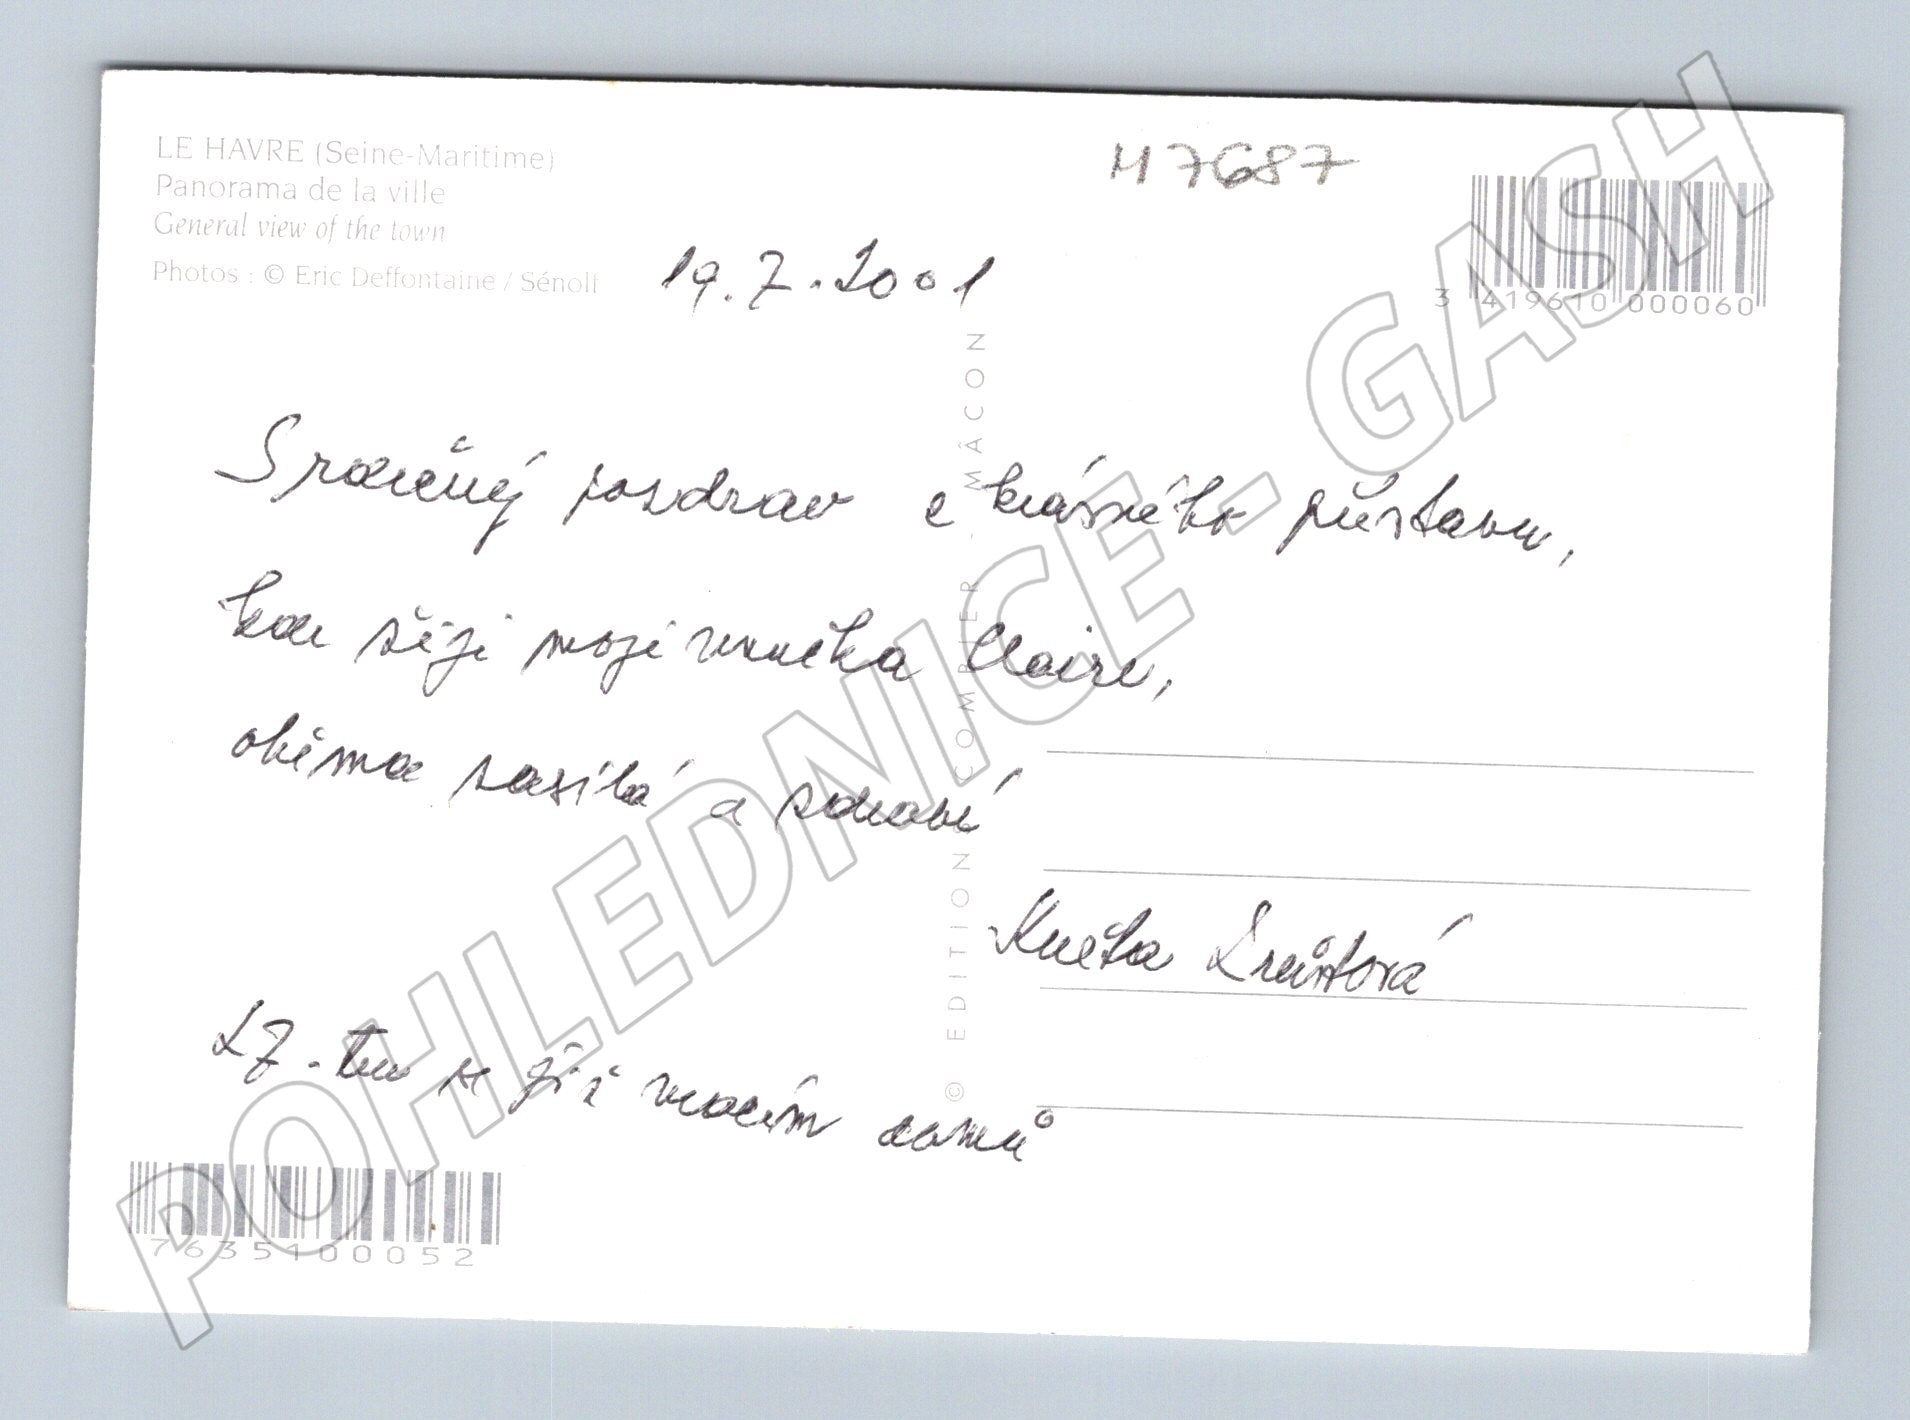 LE HAVRE (Seine-Maritime)
Panorama de la ville
General view of the town
Photos : © Eric Deffontaine / Sénolf
H7687
3 419610 000060
19.7.2001
Srdečný pozdrav z krásného přístavu,
kde žije moje vnučka Claire,
oběma zasílá a zdraví
Květa
27. tu se již vracím domů
© EDITIONS COMBIER - MÂCON
7635100052
POHLEDNICE - GASH